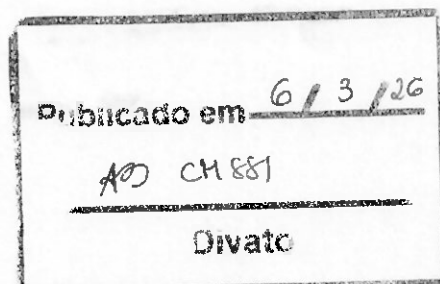 Publicado em 6 / 3 / 26
AD CM 881
Divato